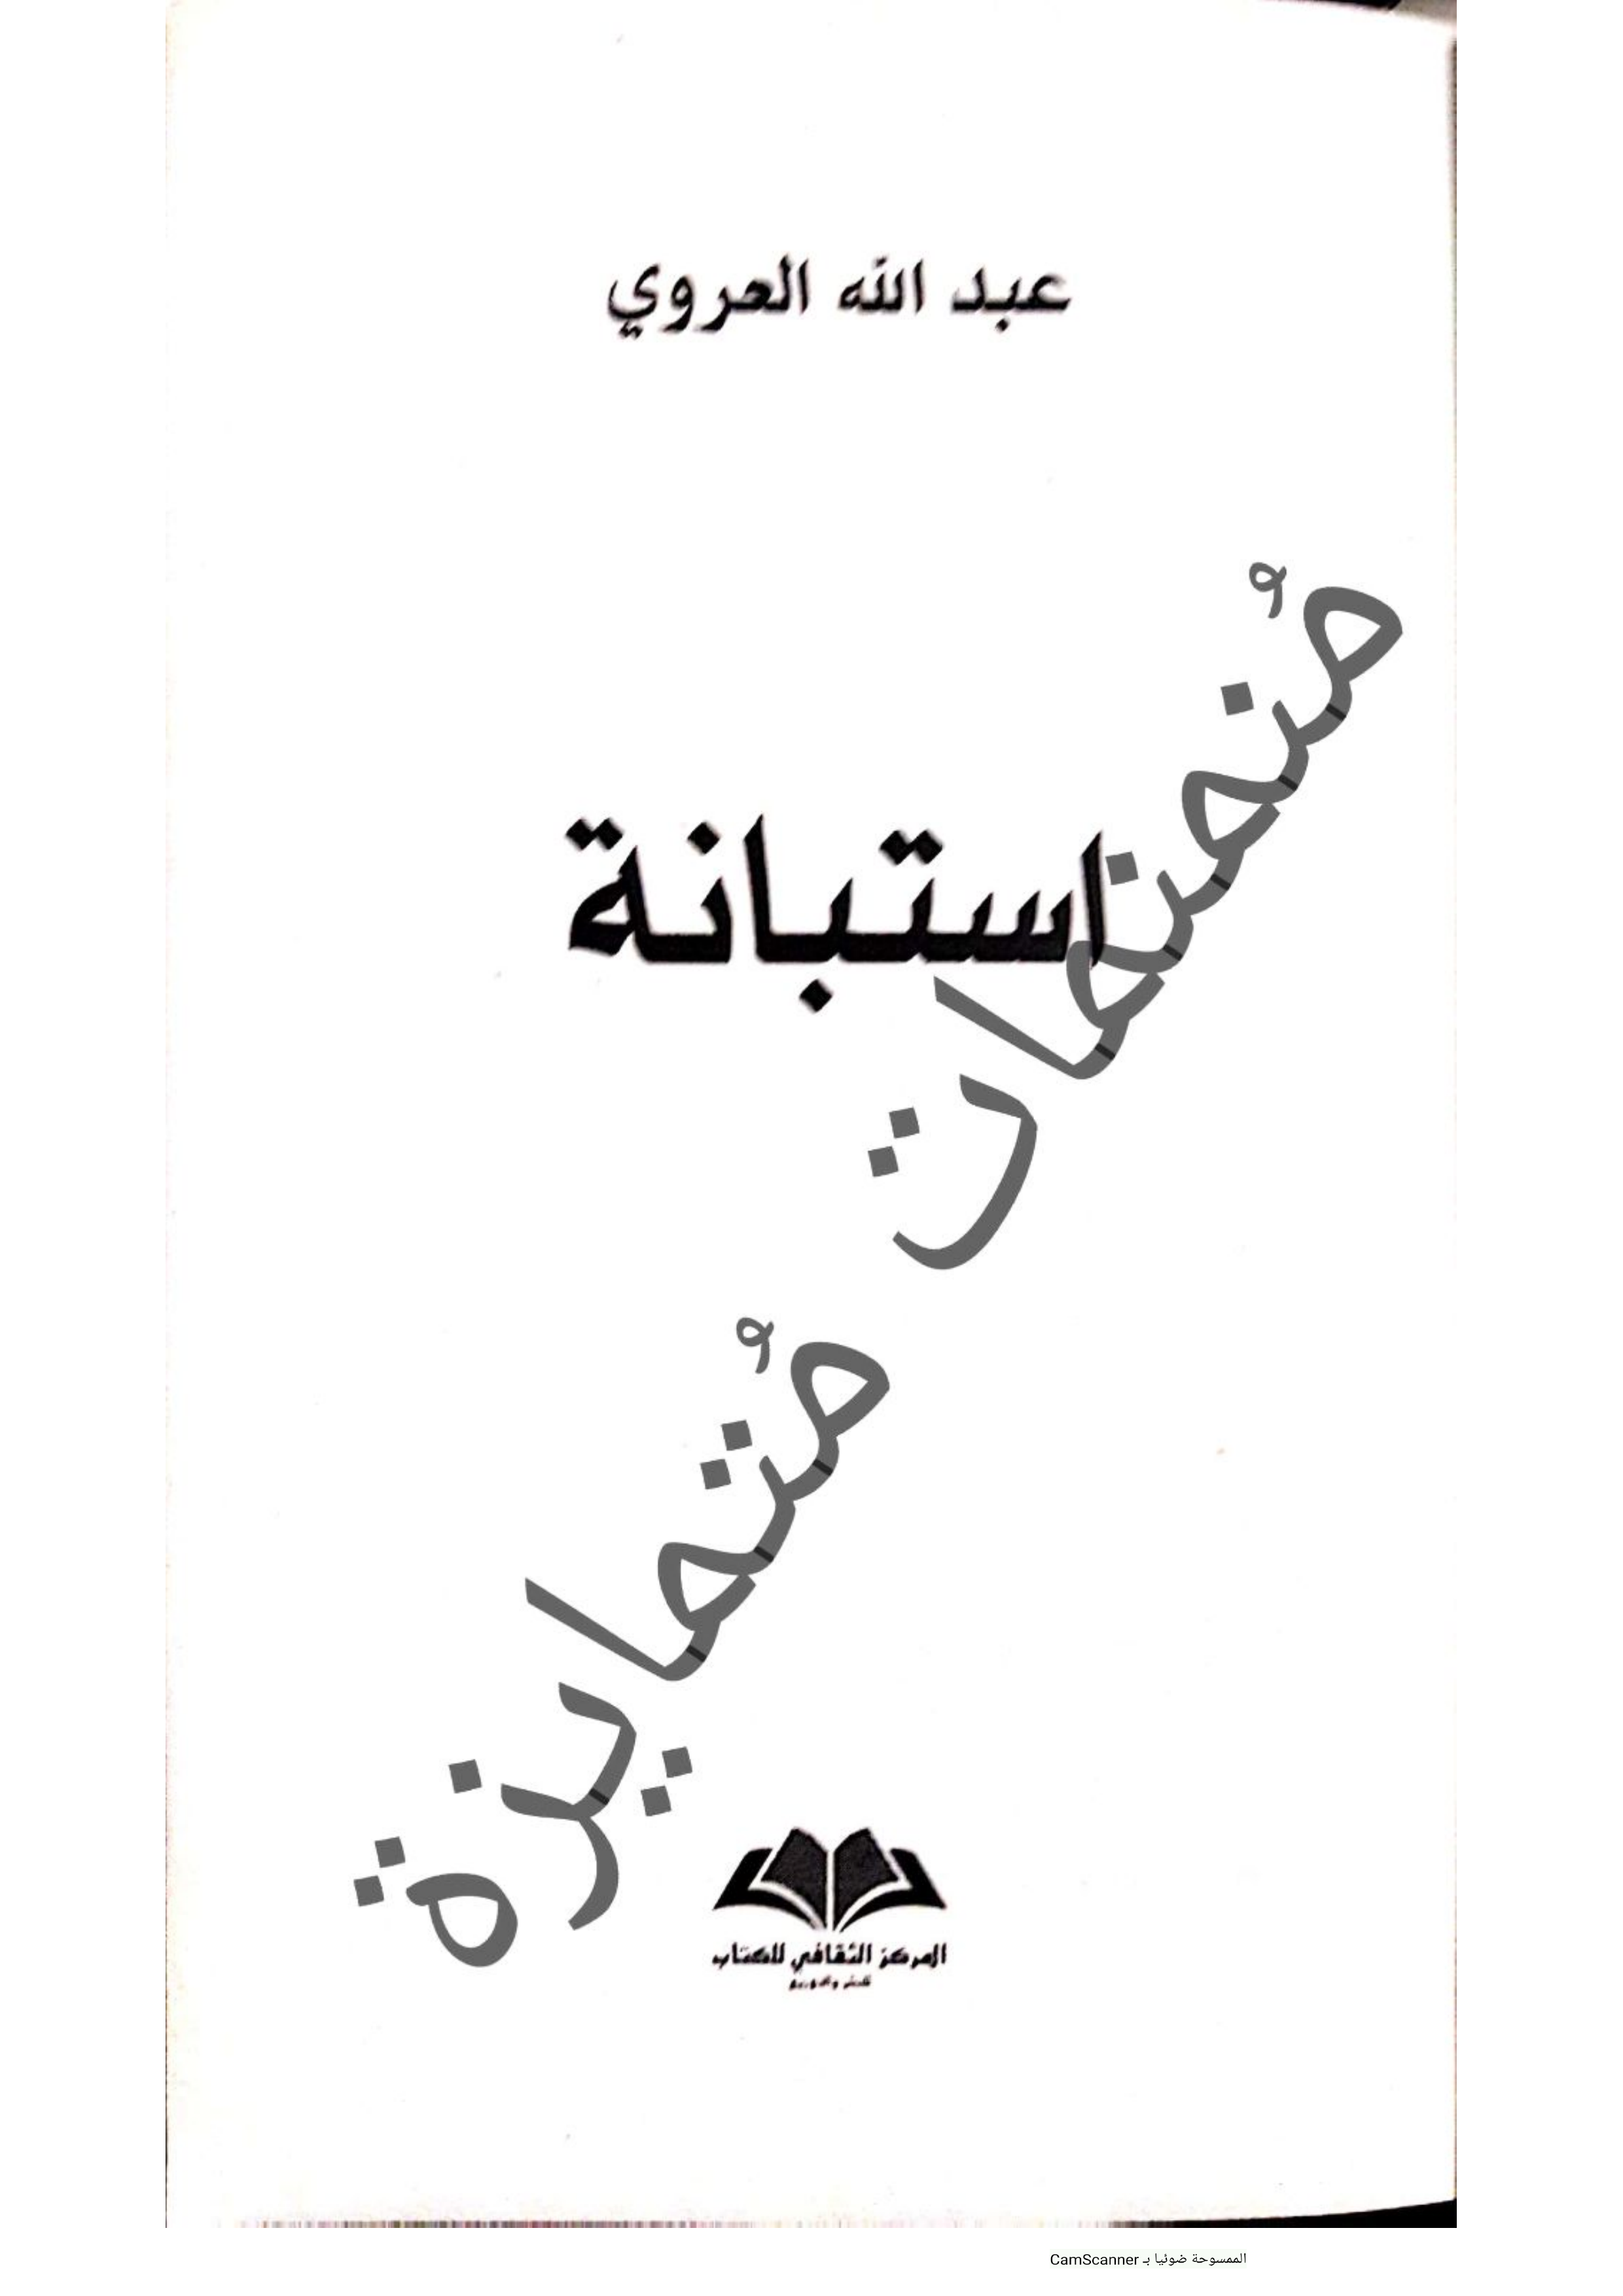 عبد الله العروي
استبانة
مُنمنمات مُتمايزة
المركز الثقافي للكتاب
للنشر والتوزيع
الممسوحة ضوئيا بـ CamScanner